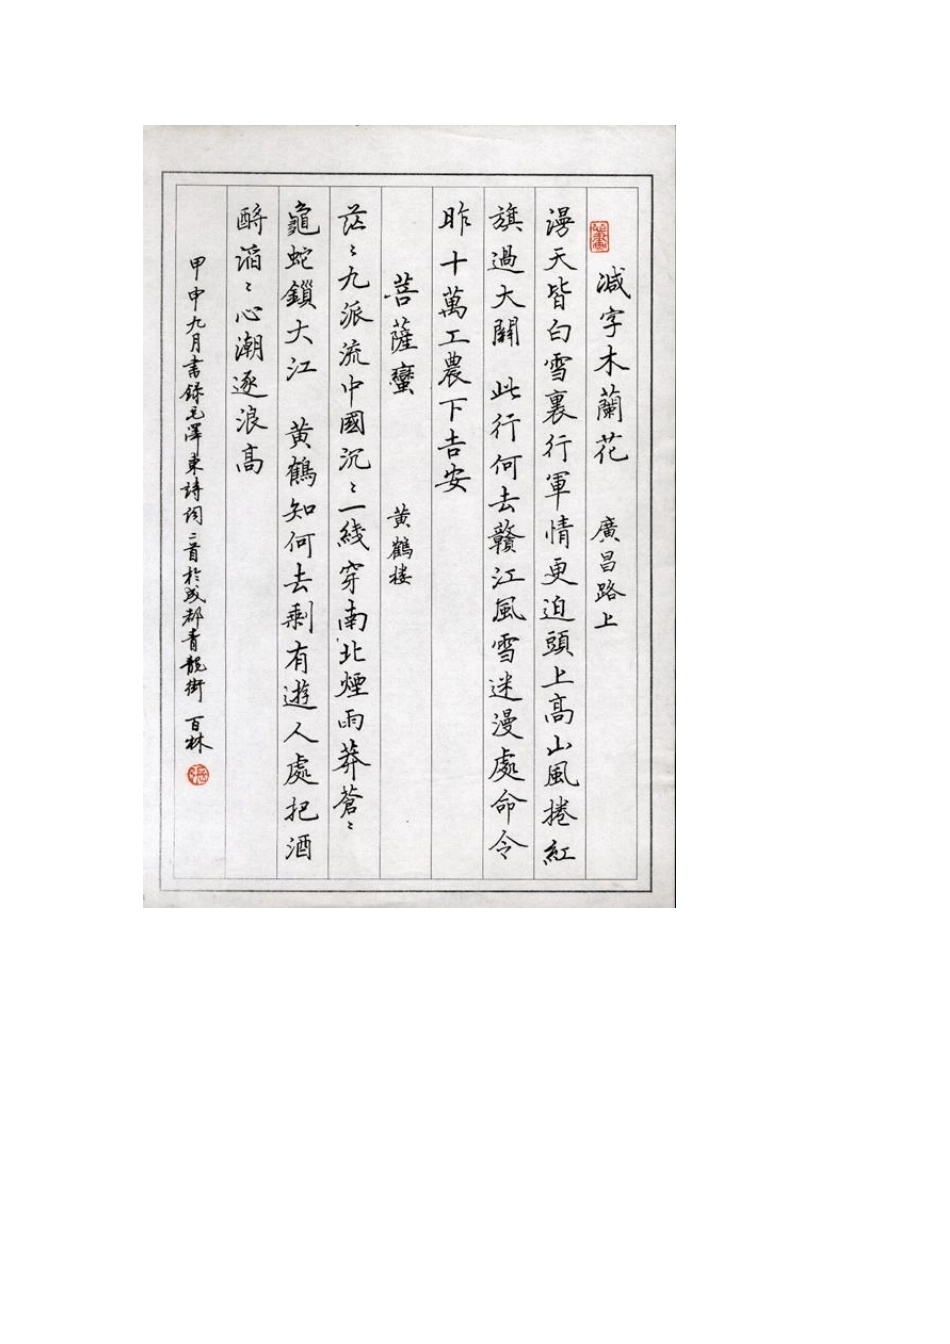 减字木蘭花　廣昌路上
漫天皆白雪裏行軍情更迫頭上高山風捲紅
旗過大關　此行何去贛江風雪迷漫處命令
昨十萬工農下吉安
菩薩蠻　黄鶴楼
茫〻九派流中國沉〻一綫穿南北煙雨莽蒼〻
龜蛇鎖大江　黄鶴知何去剩有遊人處把酒
酹滔〻心潮逐浪高
甲申九月書錄毛澤東詩詞二首於成都青龍街　百林